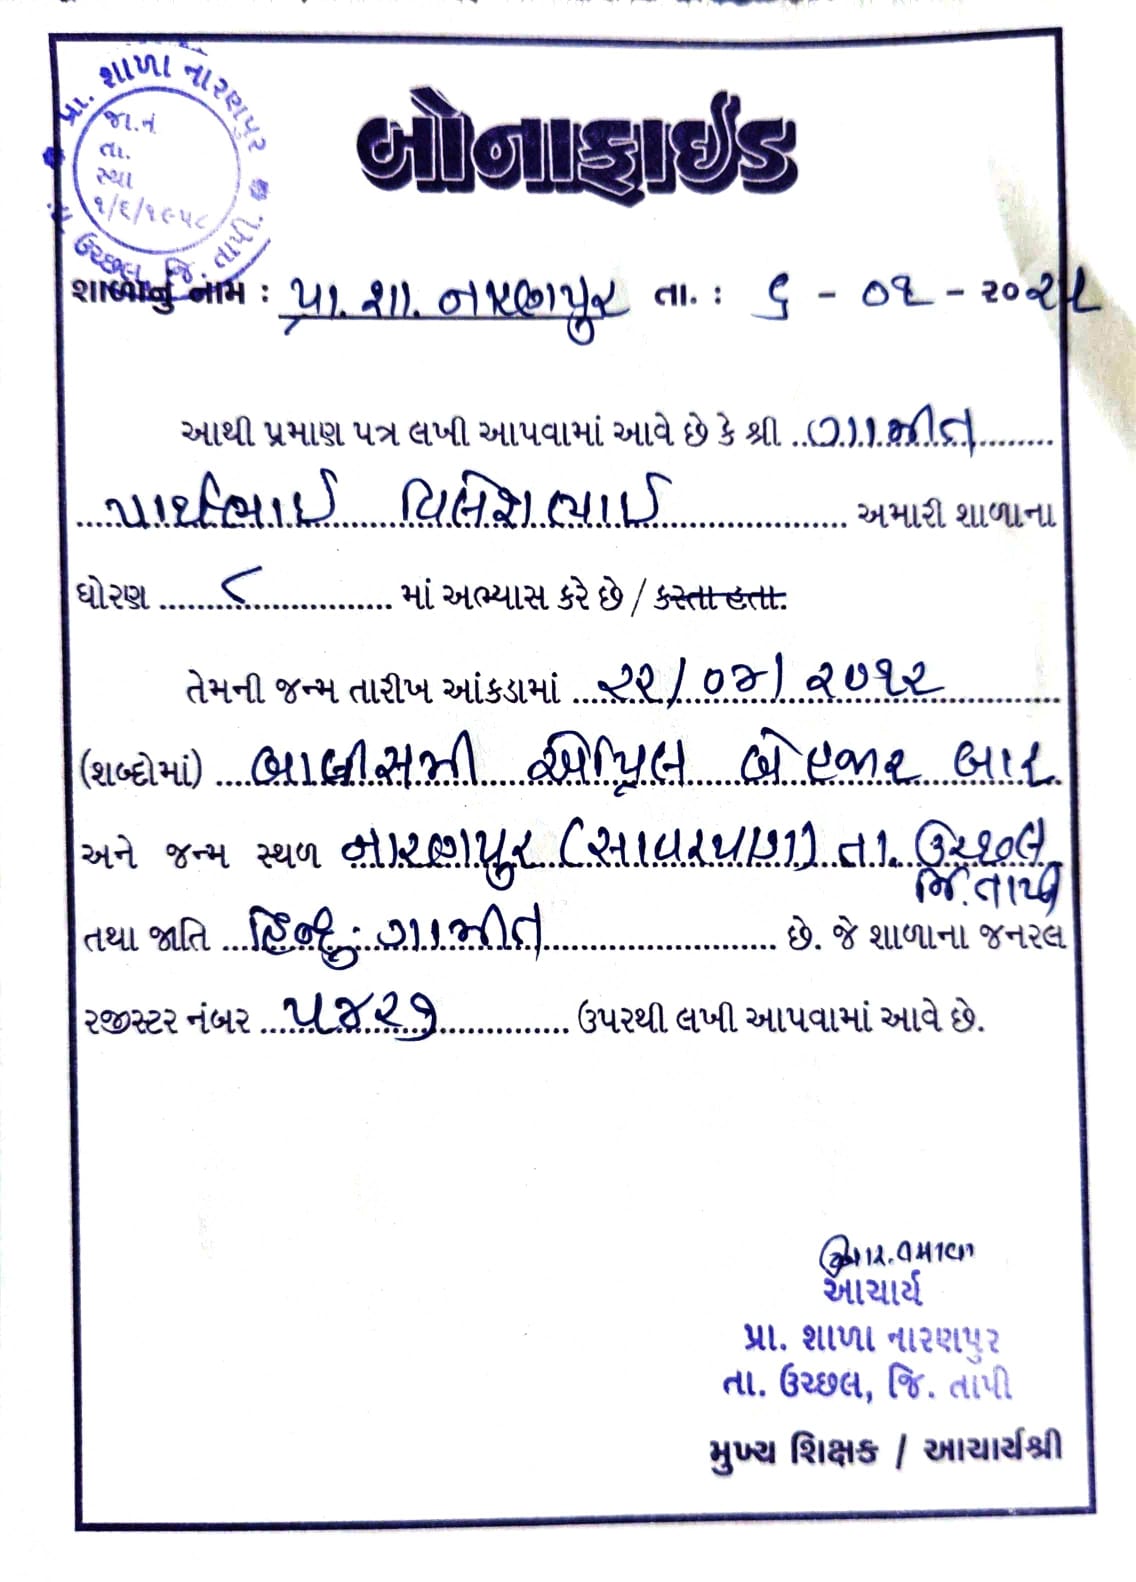 પ્રા. શાળા નારણપુર
જા.નં
તા.
સ્થા
૧/૬/૧૯૫૮
ઉચ્છલ, જિ. તાપી.
બોનાફાઈડ
શાળાનું નામ : પ્રા. શા. નારણપુર તા. : ૬ - ૦૧ - ૨૦૨૫
આથી પ્રમાણ પત્ર લખી આપવામાં આવે છે કે શ્રી ગામીત
પાર્થભાઈ વિલેશભાઈ અમારી શાળાના
ધોરણ ૮ માં અભ્યાસ કરે છે / કરતા હતા.
તેમની જન્મ તારીખ આંકડામાં ૨૨/૦૪/૨૦૧૨
(શબ્દોમાં) બાવીસમી એપ્રિલ બે હજાર બાર
અને જન્મ સ્થળ નારણપુર (સાવરપાડા) તા. ઉચ્છલ
જિ. તાપી
તથા જાતિ હિન્દુ: ગામીત છે. જે શાળાના જનરલ
રજીસ્ટર નંબર ૫૪૨૭ ઉપરથી લખી આપવામાં આવે છે.
આચાર્ય
પ્રા. શાળા નારણપુર
તા. ઉચ્છલ, જિ. તાપી
મુખ્ય શિક્ષક / આચાર્યશ્રી